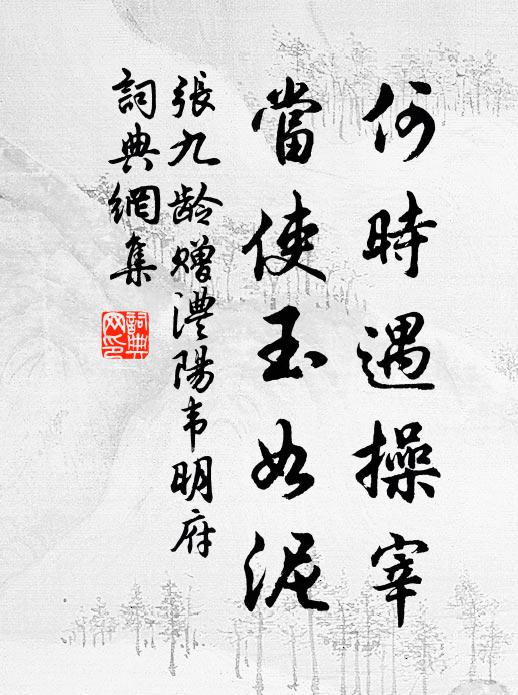 何時遇操宰
當使玉如泥
張九龄赠澧陽韦明府
詞典網集
詞典
网印